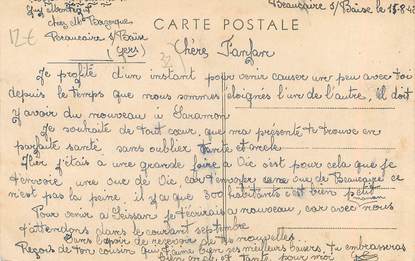 Beaucaire s/ Baïse le 15-8-42
chez Mr
12€
Beaucaire s/ Baïse
(gers)
CARTE POSTALE
Chère Fanfan
Je profite d'un instant pour venir causer une peu avec toi
depuis le temps que nous sommes éloignés l'un de l'autre, il doit
y avoir du nouveau à Saramon
Je souhaite de tout cœur, que ma présente te trouve en
parfaite santé, sans oublier tante et oncle
Hier j'étais a une grande foire a Vic c'est pour cela que je
t'envoie, une vue de Vic, car t'envoyer une vue de Beaucaire ce
n'est pas la peine, il y a que 300 habitants c'est bien petit
Pour venir a Seissan je t'écrirais a nouveau, car avec maman
nous t'attendons dans le courant septembre
Dans l'espoir de recevoir de tes nouvelles
Reçois de ton cousin qui t'aime bien ses meilleurs baisers, tu embrasseras
bien oncle et tante pour moi